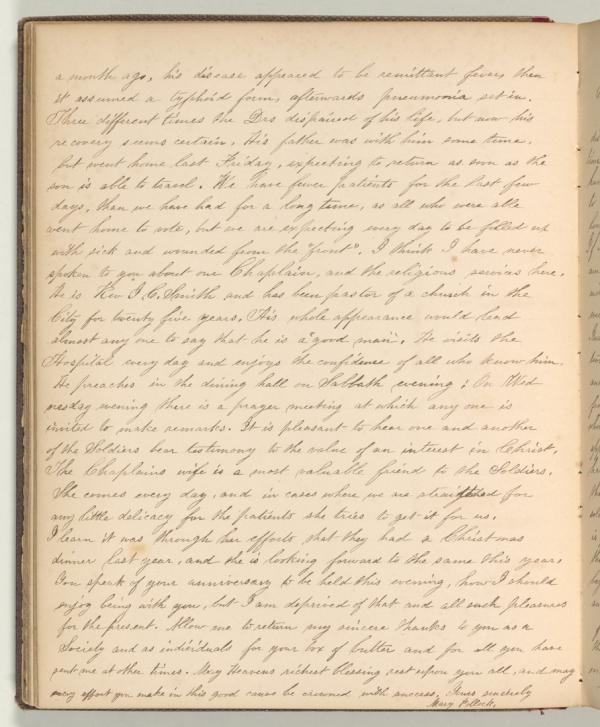 a month ago, his disease appeared to be remittant fever, then
it assumed a typhoid form, afterwards pneumonia set in.
Three different times the Drs dispaired of his life, but now his
recovery seems certain. His father was with him some time,
but went home last Friday, expecting to return as soon as the
son is able to travel. We have fewer patients for the last few
days, than we have had for a long time, as all who were able
went home to vote, but we are expecting every day to be filled up
with sick and wounded from the "front". I think I have never
spoken to you about our Chaplain, and the religious services here.
He is Rev J. C. Smith and has been pastor of a church in the
City for twenty five years. His whole appearance would lead
almost any one to say that he is a "good man". He visits the
Hospital every day and enjoys the confidence of all who know him.
He preaches in the dining hall on Sabbath evening; On Wed
nesday evening there is a prayer meeting at which any one is
invited to make remarks. It is pleasant to hear one and another
of the Soldiers bear testimony to the value of an interest in Christ.
The Chaplains wife is a most valuable friend to the Soldiers.
She comes every day, and in cases where we are straitened for
any little delicacy for the patients she tries to get it for us.
I learn it was through her efforts that they had a Christmas
dinner last year, and she is looking forward to the same this year.
You speak of your anniversary to be held this evening, how I should
enjoy being with you, but I am deprived of that and all such pleasures
for the present. Allow me to return my sincere thanks to you as a
Society and as individuals for your box of butter and for all you have
sent me at other times. May Heavens richest blessing rest upon you all, and may
every effort you make in this good cause be crowned with success. Yours sincerely
Mary Pollock.